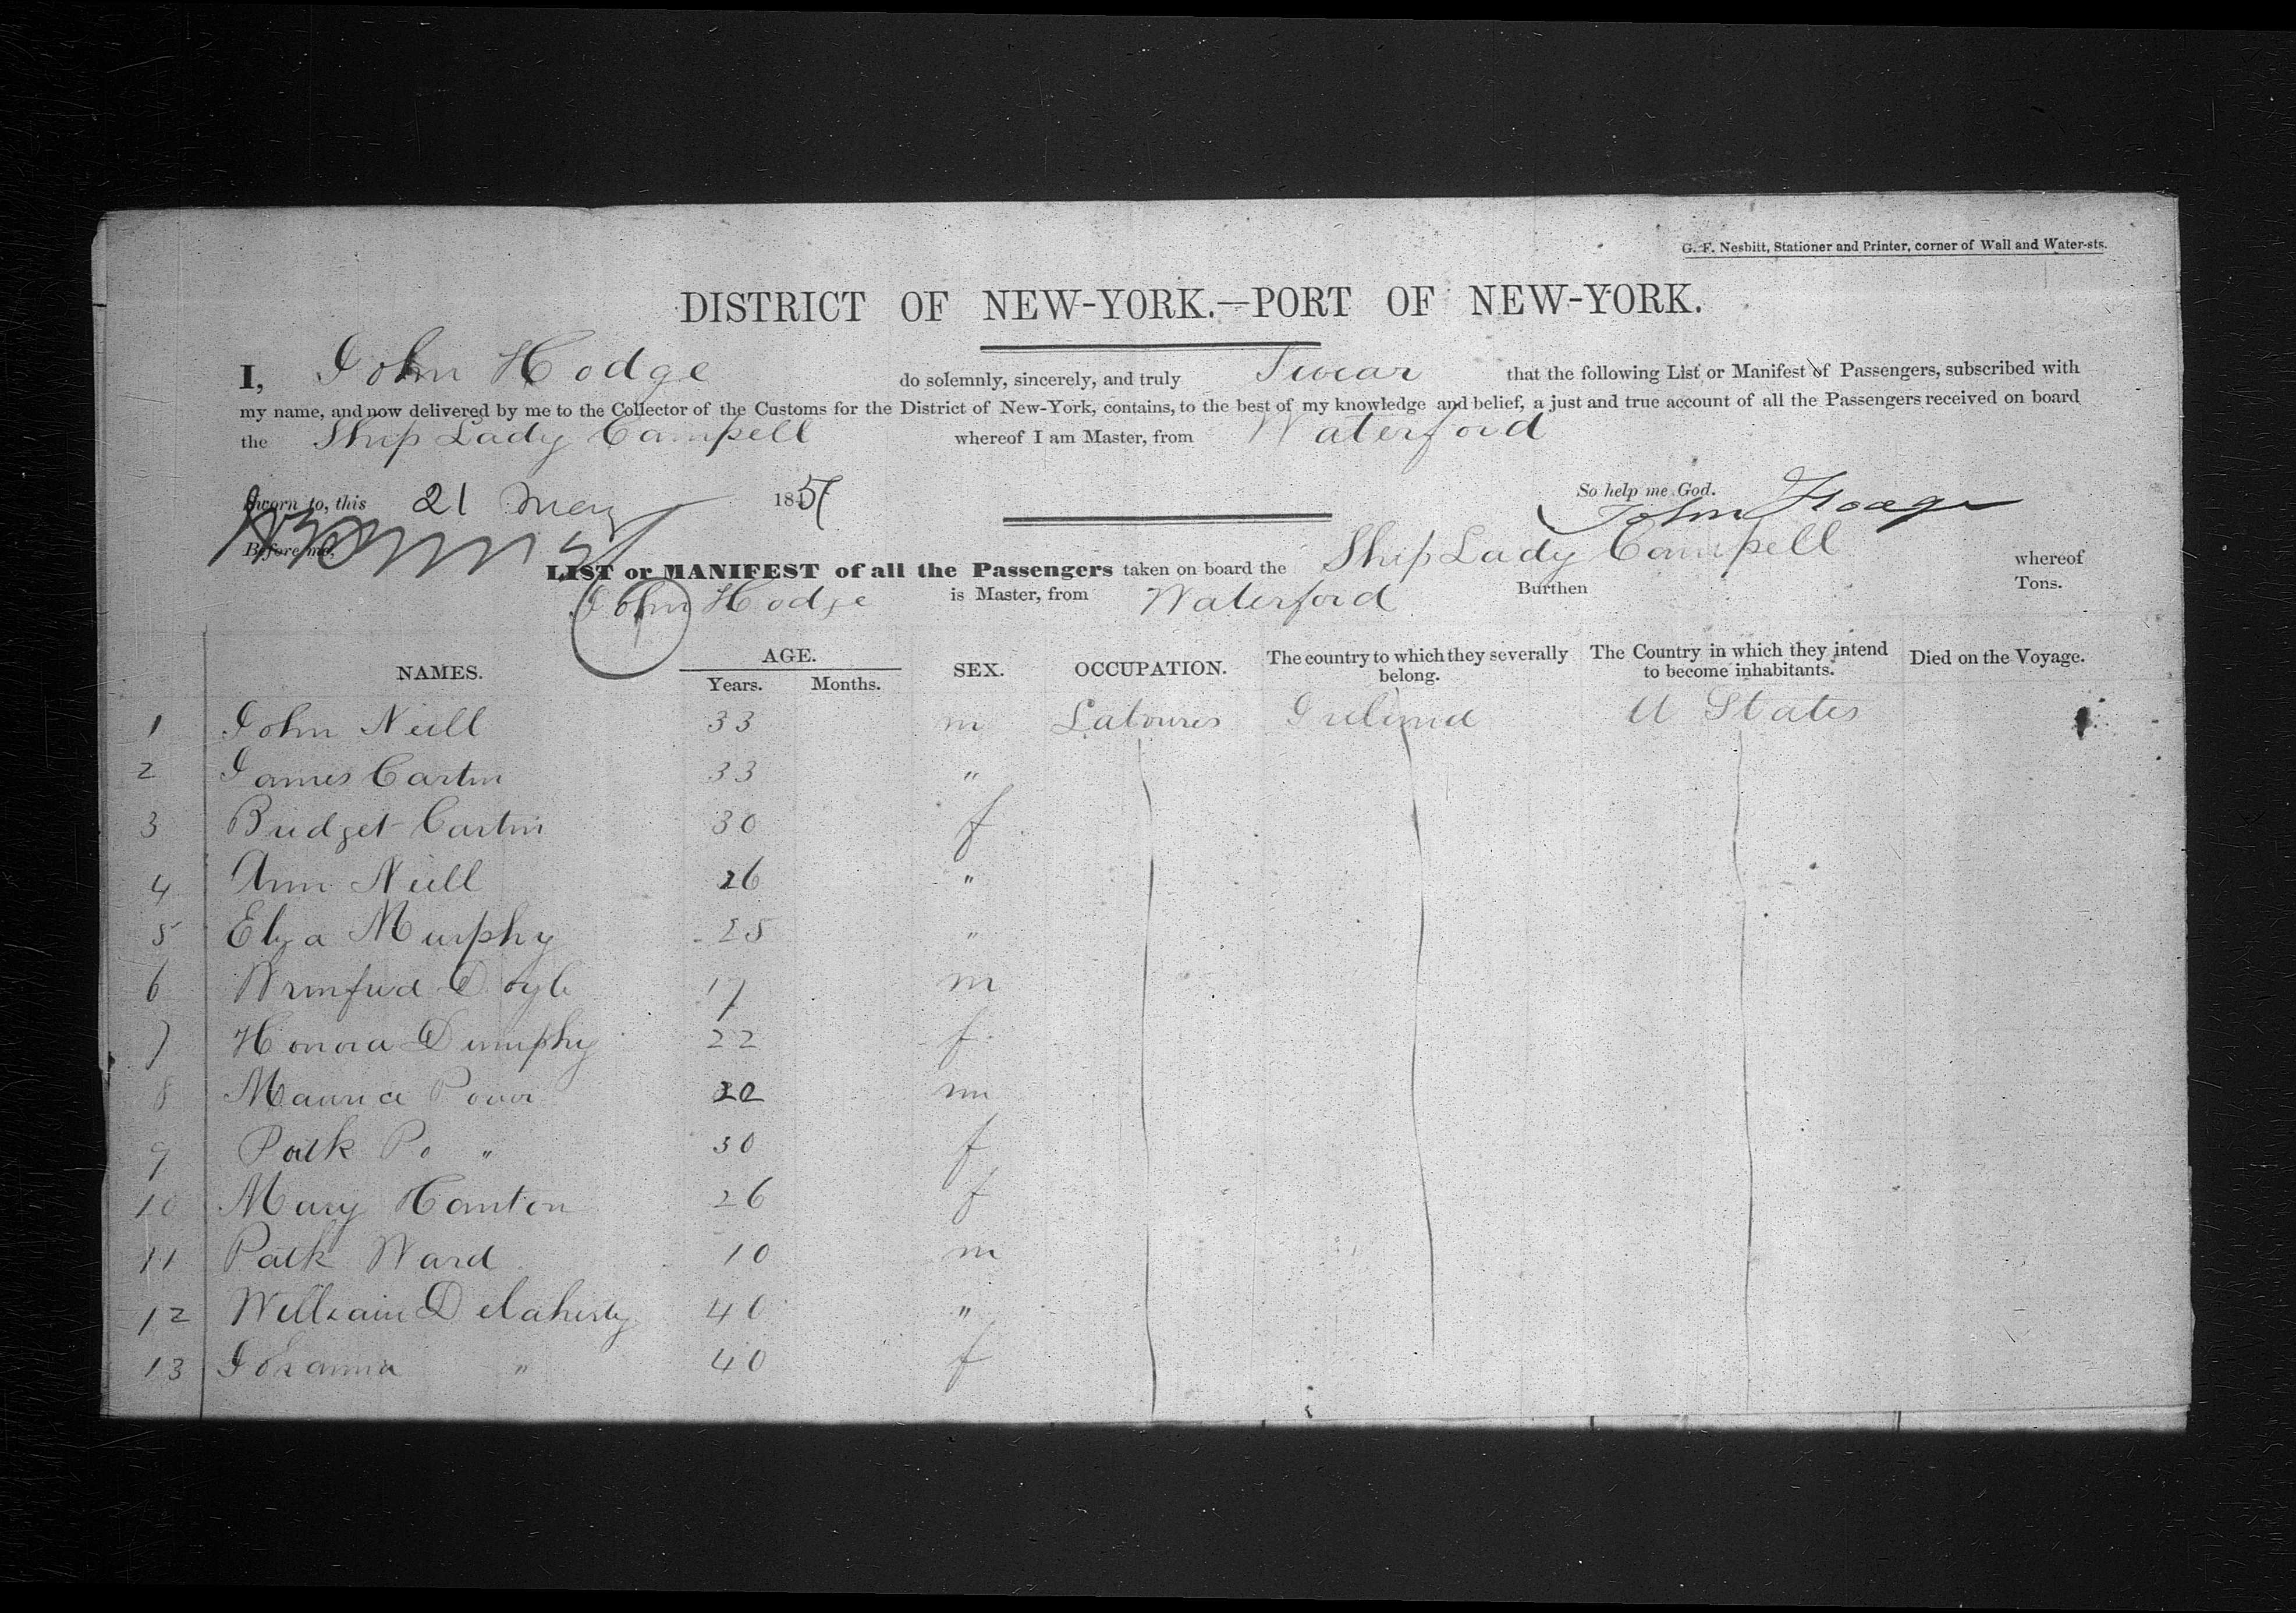 G. F. Nesbitt, Stationer and Printer, corner of Wall and Water-sts.
DISTRICT OF NEW-YORK.—PORT OF NEW-YORK.
I, John Hodge do solemnly, sincerely, and truly Swear that the following List or Manifest of Passengers, subscribed with
my name, and now delivered by me to the Collector of the Customs for the District of New-York, contains, to the best of my knowledge and belief, a just and true account of all the Passengers received on board
the Ship Lady Campell whereof I am Master, from Waterford
Sworn to, this 21 May 185 So help me God.
John Hodge
Before me,
LIST or MANIFEST of all the Passengers taken on board the Ship Lady Campell whereof
John Hodge is Master, from Waterford Burthen Tons.
NAMES. AGE. Years. Months. SEX. OCCUPATION. The country to which they severally belong. The Country in which they intend to become inhabitants. Died on the Voyage.
1 John Neill 33 m Labourers Ireland U States
2 James Cartin 33 "
3 Bridget Cartin 30 f
4 Ann Neill 26 "
5 Eliza Murphy 25 "
6 Winifred Doyle 17 m
7 Honora Dunphy 22 f
8 Maurice Power m
9 Patk Po " 30 f
10 Mary Hanton 26 f
11 Patk Ward 10 m
12 William Delaherty 40 "
13 Johanna " 40 f